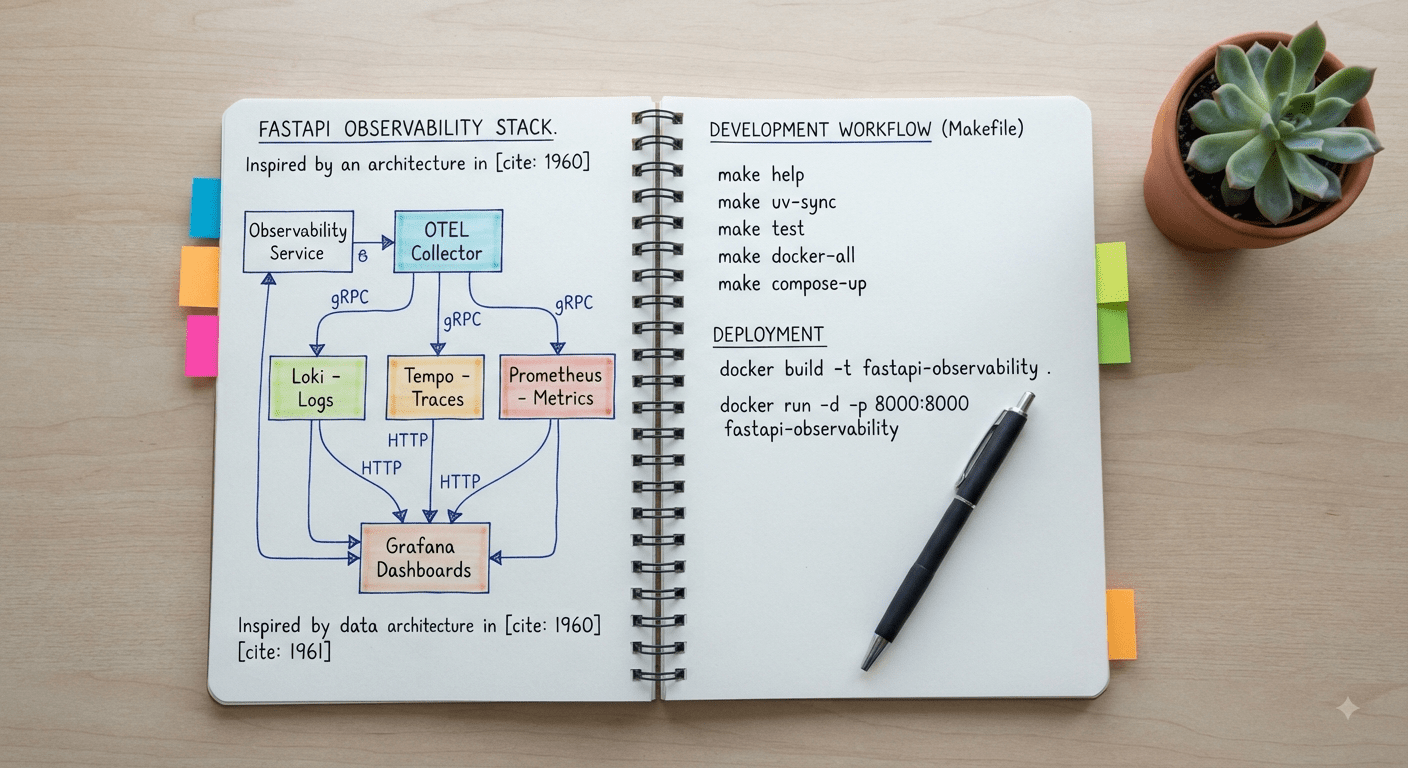 FASTAPI OBSERVABILITY STACK.
Inspired by an architecture in [cite: 1960]
Observability
Service
OTEL
Collector
gRPC
gRPC
gRPC
Loki –
Logs
Tempo –
Traces
Prometheus
– Metrics
HTTP
HTTP
HTTP
Grafana
Dashboards
Inspired by data architecture in [cite: 1960]
[cite: 1961]
DEVELOPMENT WORKFLOW (Makefile)
make help
make uv-sync
make test
make docker-all
make compose-up
DEPLOYMENT
docker build -t fastapi-observability .
docker run -d -p 8000:8000
fastapi-observability